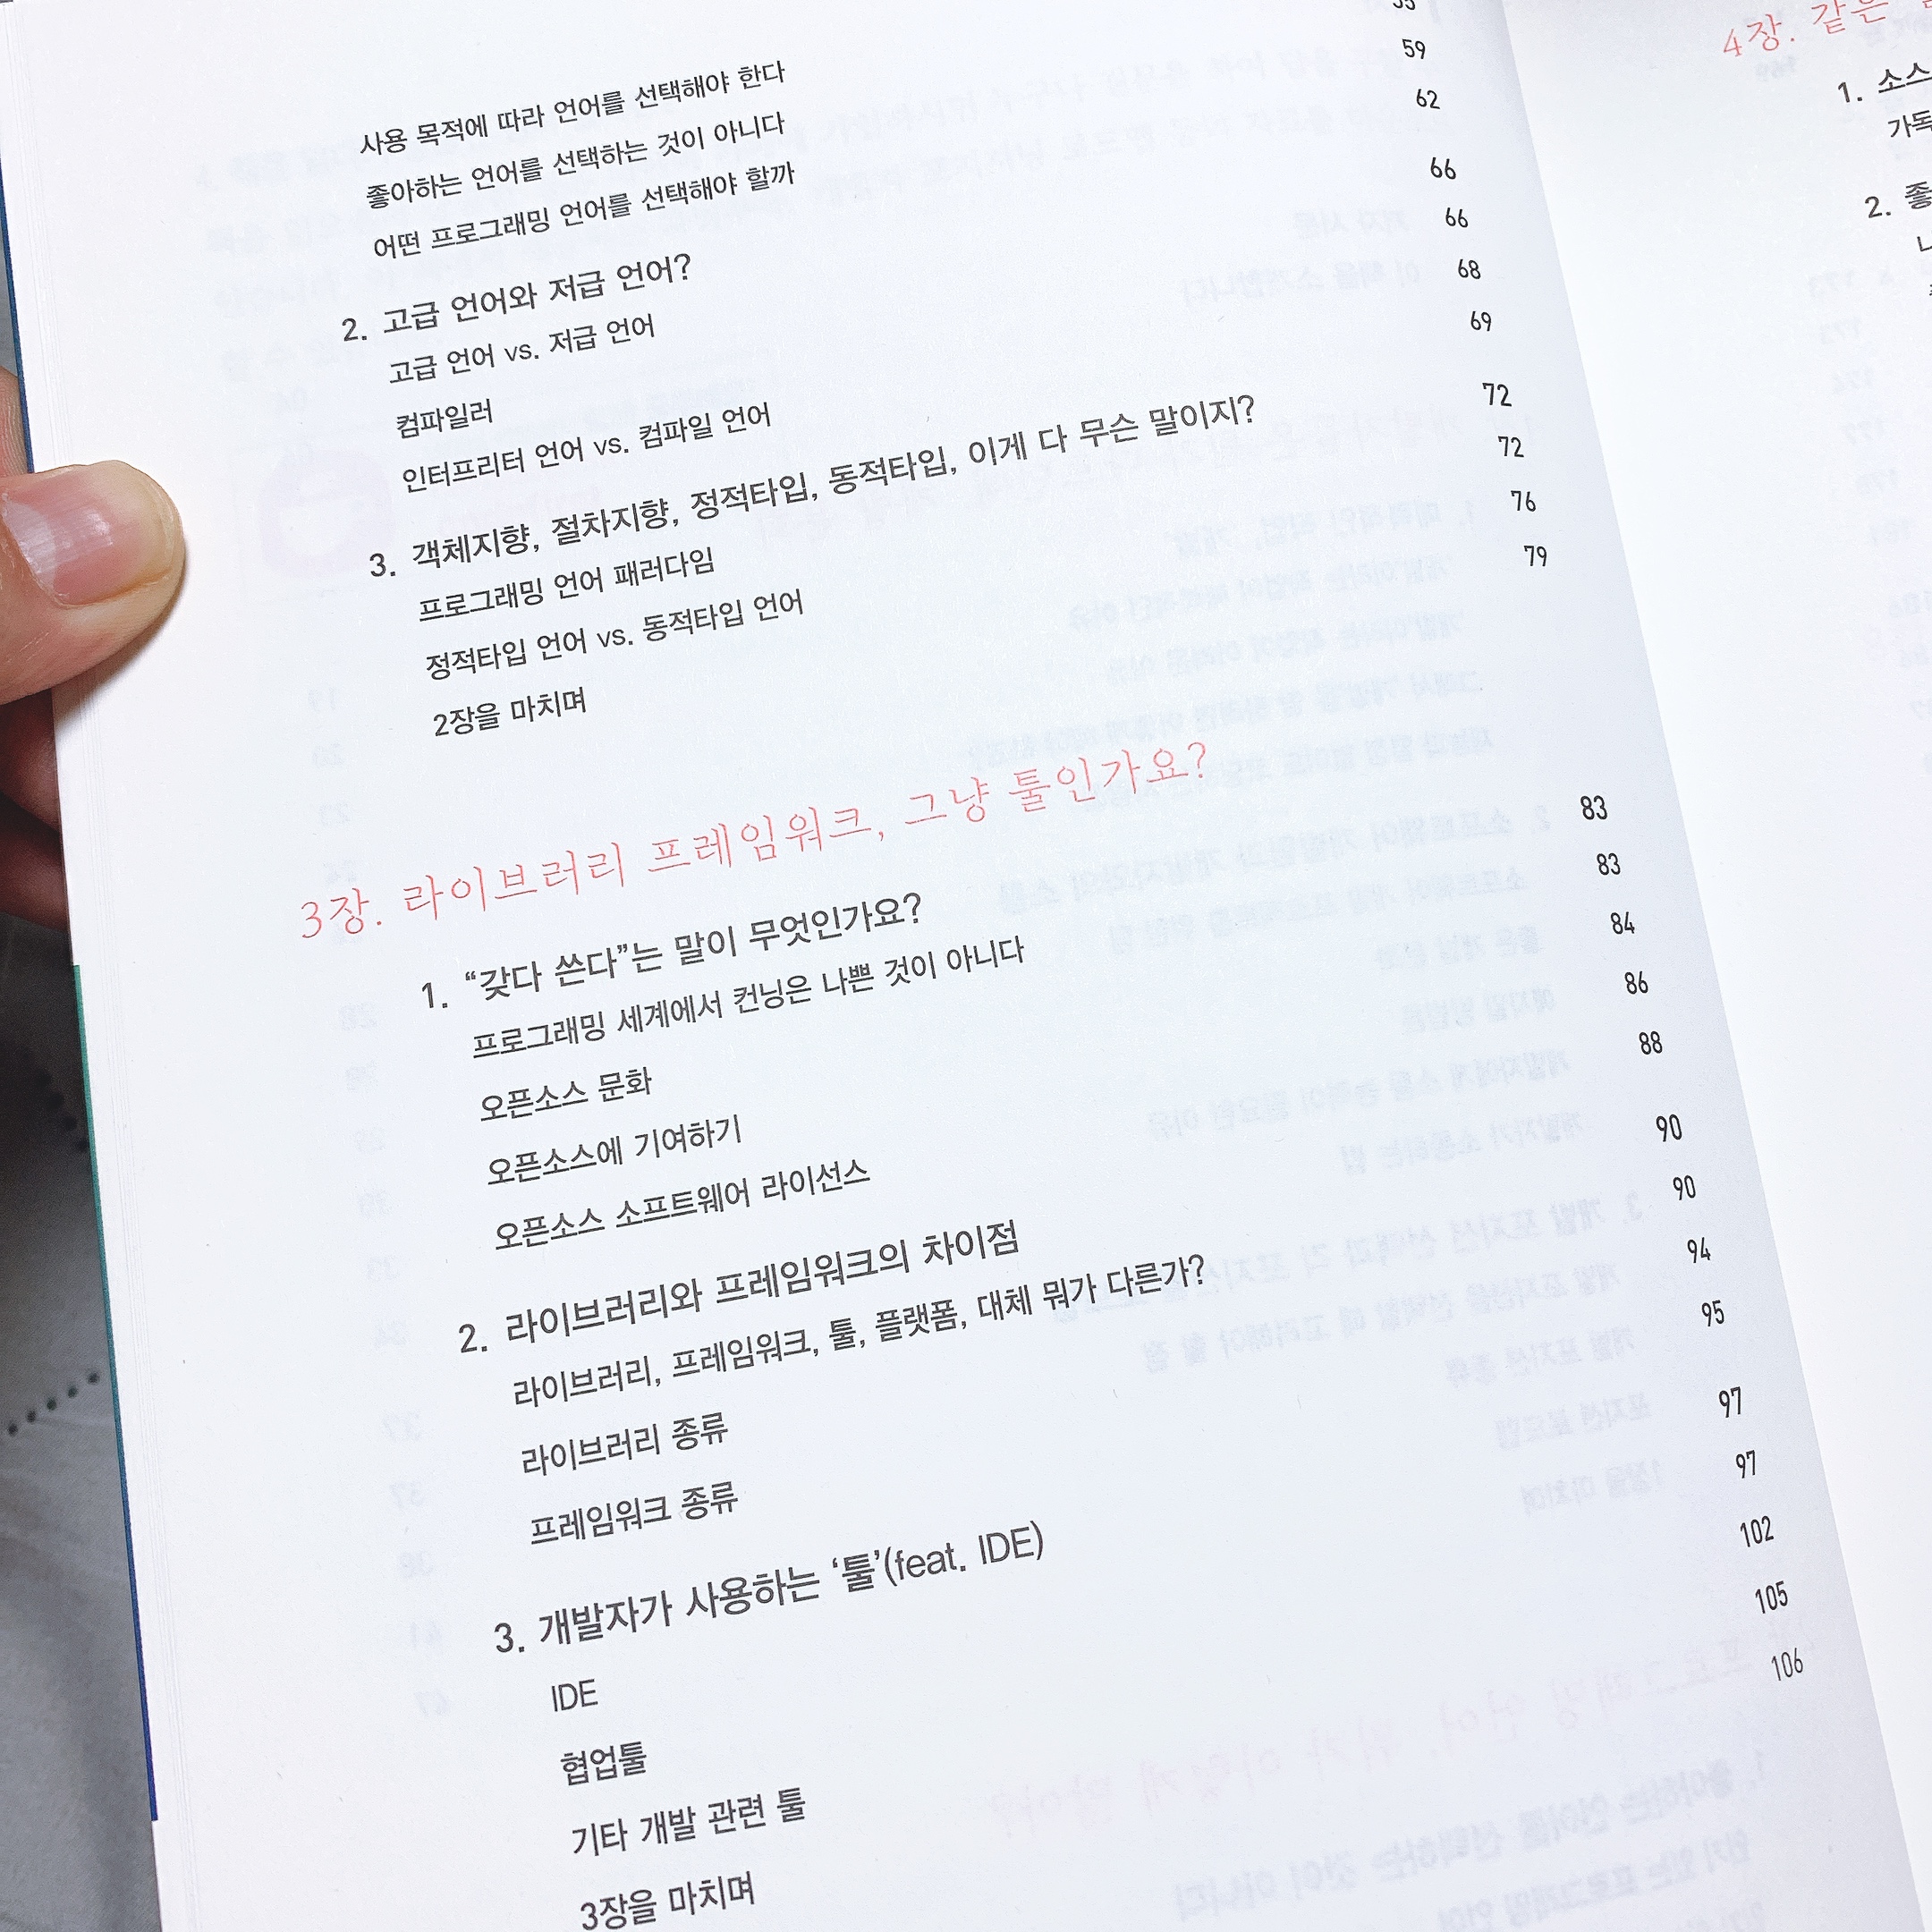 사용 목적에 따라 언어를 선택해야 한다
좋아하는 언어를 선택하는 것이 아니다 59
어떤 프로그래밍 언어를 선택해야 할까 62
2. 고급 언어와 저급 언어? 66
고급 언어 vs. 저급 언어 66
컴파일러 68
인터프리터 언어 vs. 컴파일 언어 69
3. 객체지향, 절차지향, 정적타입, 동적타입, 이게 다 무슨 말이지? 72
프로그래밍 언어 패러다임 72
정적타입 언어 vs. 동적타입 언어 76
2장을 마치며 79
3장. 라이브러리 프레임워크, 그냥 툴인가요?
1. “갖다 쓴다”는 말이 무엇인가요? 83
프로그래밍 세계에서 컨닝은 나쁜 것이 아니다 83
오픈소스 문화 84
오픈소스에 기여하기 86
오픈소스 소프트웨어 라이선스 88
2. 라이브러리와 프레임워크의 차이점 90
라이브러리, 프레임워크, 툴, 플랫폼, 대체 뭐가 다른가? 90
라이브러리 종류 94
프레임워크 종류 95
3. 개발자가 사용하는 ‘툴’(feat. IDE) 97
IDE 97
협업툴 102
기타 개발 관련 툴 105
3장을 마치며 106
4장. 같은
1. 소스
2. 좋